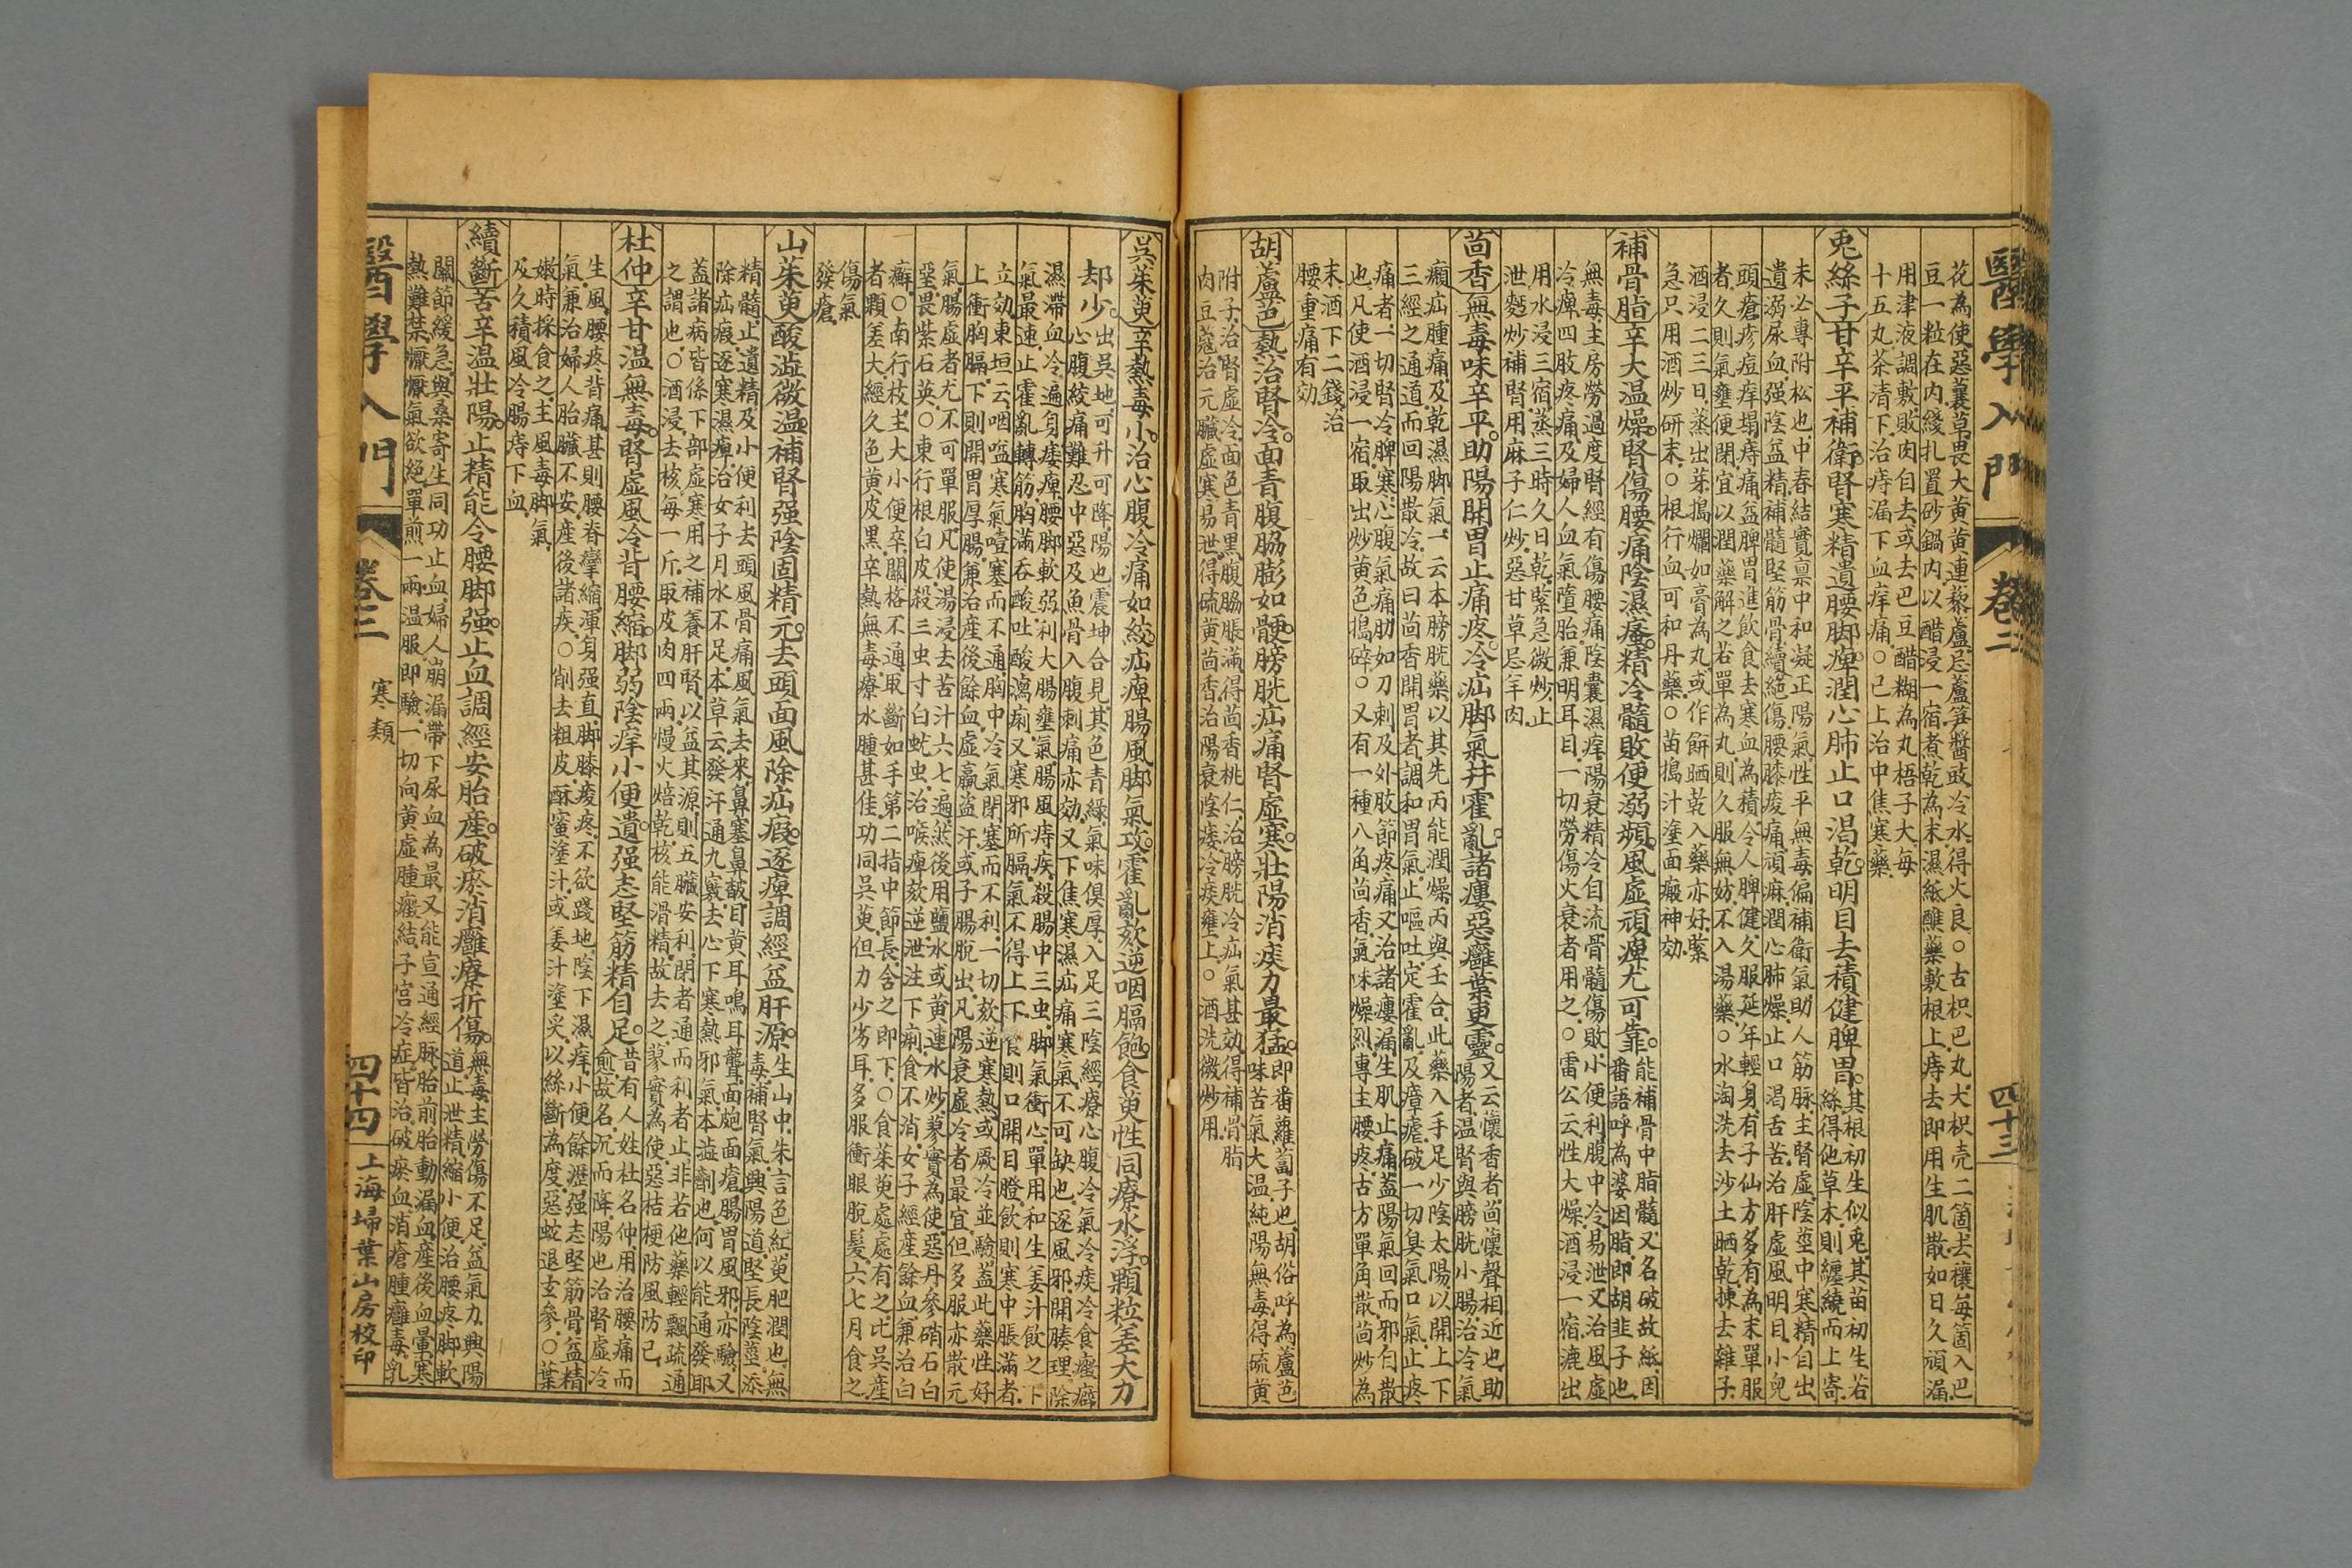 醫學入門
卷二
四十三
花為使惡蘘草畏大黄黄連藜蘆忌蘆笋醬豉冷水得火良○古枳巴丸大枳壳二箇去穰每箇入巴
豆一粒在内綫扎置砂鍋内以醋浸一宿煮乾為末濕紙蘸藥敷根上痔去即用生肌散如日久頑漏
用津液調敷敗肉自去或去巴豆醋糊為丸梧子大每
十五丸茶清下治痔漏下血痒痛○已上治中焦寒藥
兎絲子甘辛平補衛腎寒精遺腰脚痺潤心肺止口渴乾明目去積健脾胃
其根初生似兎其苗初生若
絲得他草木則纏繞而上寄
末必專附松也中春結實禀中和凝正陽氣性平無毒偏補衛氣助人筋脉主腎虛陰莖中寒精自出
遺溺尿血强陰益精補髓堅筋骨續絕傷腰膝痠痛頑麻潤心肺燥止口渴舌苦治肝虛風明目小兒
頭瘡疹痘痒塌痔痛益脾胃進飲食去寒血為積令人脾健久服延年輕身有子仙方多有為末單服
者久則氣壅便閉宜以潤藥解之若單為丸則久服無妨不入湯藥○水淘洗去沙土晒乾揀去雜子
酒浸二三日蒸出芽搗爛如膏為丸或作餅晒乾入藥亦好緊
急只用酒炒研末○根行血可和丹藥○苗搗汁塗面癍神効
補骨脂辛大温燥腎傷腰痛陰濕瘙精冷髓敗便溺頻風虛頑痺尤可靠
能補骨中脂髓又名破故紙因
番語呼為婆因脂即胡韭子也
無毒主房勞過度腎經有傷腰痛陰囊濕痒陽衰精冷自流骨髓傷敗小便利腹中冷易泄又治風虛
冷痺四肢疼痛及婦人血氣墮胎兼明耳目一切勞傷火衰者用之○雷公云性大燥酒浸一宿漉出
用水浸三宿蒸三時久日乾緊急微炒止
泄麪炒補腎用麻子仁炒惡甘草忌羊肉
茴香無毒味辛平助陽開胃止痛疼冷疝脚氣并霍亂諸瘻惡癰葉更靈
又云懷香者茴懷聲相近也助
陽者温腎與膀胱小腸治冷氣
癩疝腫痛及乾濕脚氣一云本膀胱藥以其先丙能潤燥丙與壬合此藥入手足少陰太陽以開上下
三經之通道而回陽散冷故曰茴香開胃者調和胃氣止嘔吐定霍亂及瘴瘧破一切臭氣口氣止疼
痛者一切腎冷脾寒心腹氣痛肋如刀刺及外肢節疼痛又治諸瘻漏生肌止痛蓋陽氣回而邪自散
也凡使酒浸一宿取出炒黄色搗碎○又有一種八角茴香氣味燥烈專主腰疼古方單角散茴炒為
末酒下二錢治
腰重痛有効
胡蘆巴熱治腎冷面青腹脇膨如䩕膀胱疝痛腎虛寒壯陽消痰力最猛
即番蘿蔔子也胡俗呼為蘆芭
味苦氣大温純陽無毒得硫黄
附子治腎虛冷面色青黑腹脇脹滿得茴香桃仁治膀胱冷疝氣甚効得補骨脂
肉豆蔻治元臟虛寒易泄得硫黄茴香治陽衰陰痿冷痰壅上○酒洗微炒用
吳茱萸辛熱毒小治心腹冷痛如絞疝痺腸風脚氣攻霍亂欬逆咽膈飽食萸性同療水浮顆粒差大力
却少
出吳地可升可降陽也震坤合見其色青綠氣味俱厚入足三陰經療心腹冷氣冷痰冷食癥癖
心腹絞痛難忍中惡及魚骨入腹刺痛亦効又下焦寒濕疝痛寒氣不可缺也逐風邪開腠理除
濕滯血冷遍身痿痺腰脚軟弱利大腸壅氣腸風痔疾殺腸中三虫脚氣衝心單用和生姜汁飲之下
氣最速止霍亂轉筋胸滿吞酸吐酸瀉痢又寒邪所膈氣不得上下
則口開目瞪飲則寒中脹滿者
立効東垣云咽嗌寒氣噎塞而不通胸中冷氣閉塞而不利一切欬逆寒熱或厥冷並驗蓋此藥性好
上衝胸膈下則開胃厚腸兼治產後餘血虛羸盗汗或子腸脫出凡陽衰虛冷者最宜但多服亦散元
氣腸虛者尤不可單服凡使湯浸去苦汁六七遍然後用鹽水或黄連水炒蓼實為使惡丹參硝石白
堊畏紫石英○東行根白皮殺三虫寸白蚘虫治喉痺欬逆泄注下痢食不消女子經產餘血兼治白
癬○南行枝主大小便卒關格不通取斷如手第二指中節長含之即下○食茱萸處處有之比吳產
者顆差大經久色黄皮黑辛熱無毒療水腫甚佳功同吳萸但力少劣耳多服衝眼脫髪六七月食之
傷氣
發瘡
山茱萸酸澁微温補腎强陰固精元去頭面風除疝瘕逐痺調經益肝源
生山中朱言色紅萸肥潤也無
毒補腎氣興陽道堅長陰莖添
精髓止遺精及小便利去頭風骨痛風氣去來鼻塞鼻齄目黄耳鳴耳聾面皰面瘡腸胃風邪亦驗又
除疝瘕逐寒濕痺治女子月水不足本草云發汗通九竅去心下寒熱邪氣本澁劑也何以能通發耶
蓋諸病皆係下部虛寒用之補養肝腎以益其源則五臟安利閉者通而利者止非若他藥輕飄疏通
之謂也○酒浸去核每一斤取皮肉四兩慢火焙乾核能滑精故去之蓼實為使惡桔梗防風防己
杜仲辛甘温無毒腎虛風冷背腰縮脚弱陰痒小便遺强志堅筋精自足
昔有人姓杜名仲用治腰痛而
愈故名沉而降陽也治腎虛冷
生風腰疼背痛甚則腰脊攣縮渾身强直脚膝痠疼不欲踐地陰下濕痒小便餘瀝强志堅筋骨益精
氣兼治婦人胎臟不安產後諸疾○削去粗皮酥蜜塗汁或姜汁塗炙以絲斷為度惡蛇退玄參○葉
嫩時採食之主風毒脚氣
及久積風冷腸痔下血
續斷苦辛温壯陽止精能令腰脚强止血調經安胎產破瘀消癰療折傷
無毒主勞傷不足益氣力興陽
道止泄精縮小便治腰疼脚軟
關節緩急與桑寄生同功止血婦人崩漏帶下尿血為最又能宣通經脉胎前胎動漏血產後血暈寒
熱難禁懨懨氣欲絕單煎一兩温服即驗一切向黄虛腫癥結子宮冷症皆治破瘀血消瘡腫癰毒乳
醫學入門
卷三
寒類
四十四
上海埽葉山房校印